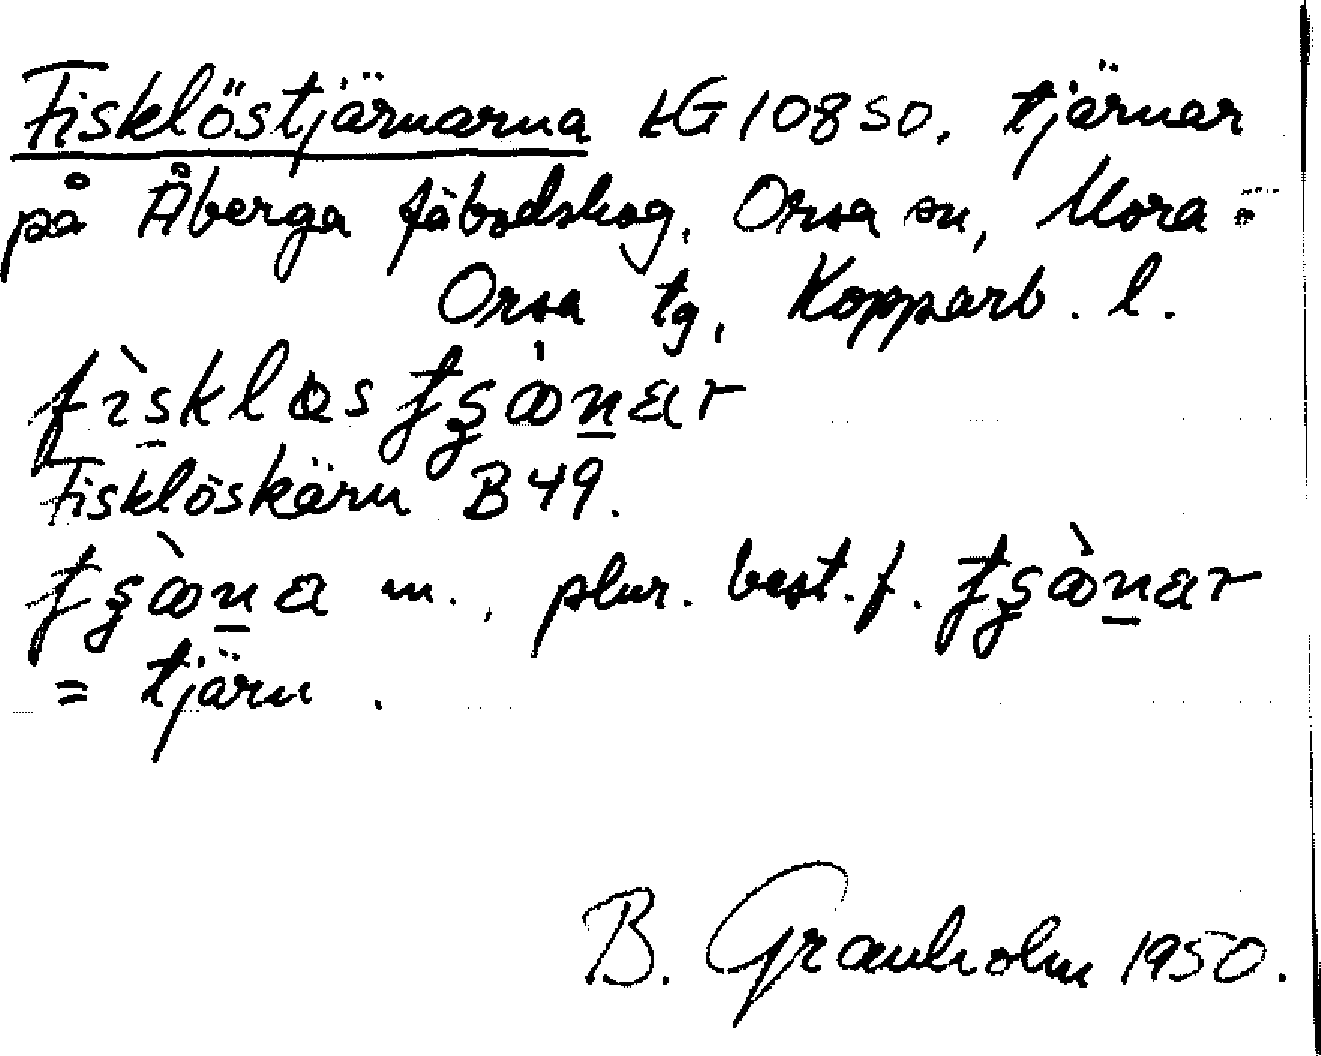 Fisklöstjärnarna LG 10850. tjärnar
på Åberga fäbodskog, Orsa sn, Mora-
Orsa tg, Kopparb. l.
Fisklöskärn B 49.
m., plur. best. f.
= tjärn.
B. Granholm 1950.